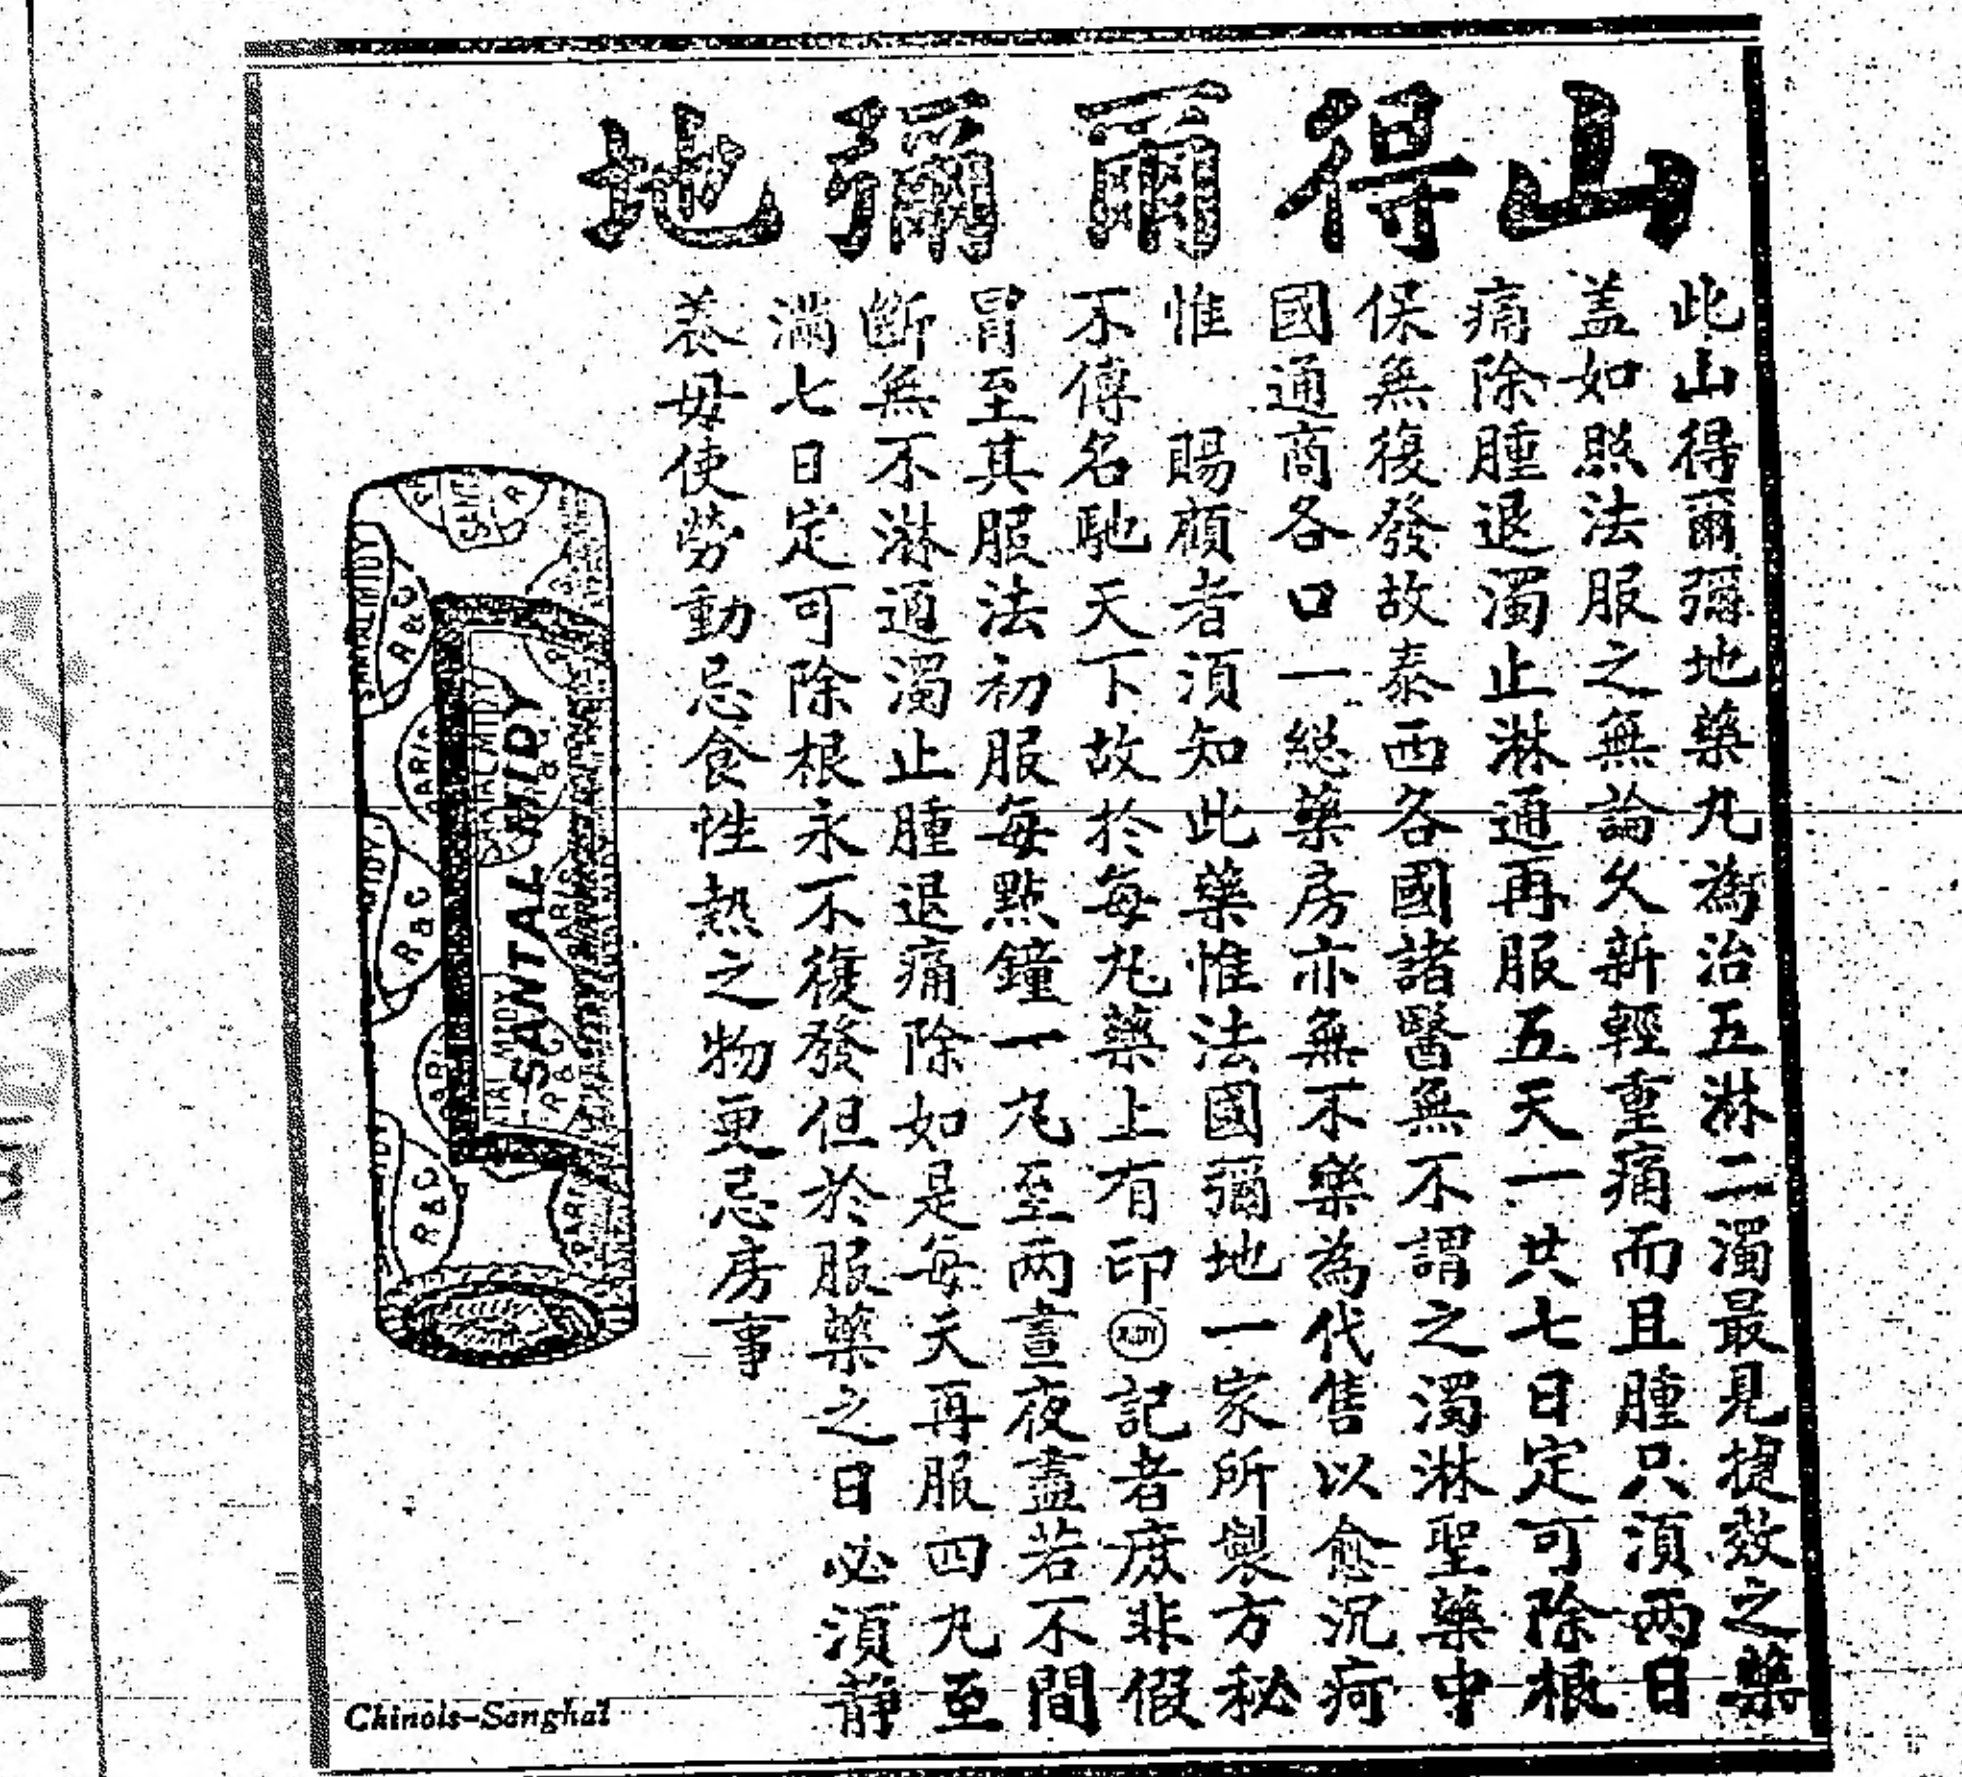 山得爾彌地
此山得爾彌地藥丸為治五淋二濁最見捷效之藥
蓋如照法服之無論久新輕重痛而且腫只須兩日
痛除腫退濁止淋通再服五天一共七日定可除根
保無復發故泰西各國諸醫無不謂之濁淋聖藥中
國通商各口一總藥房亦無不樂為代售以愈沉疴
惟 賜顧者須知此藥惟法國彌地一家所製方秘
不傳名馳天下故於每丸藥上有印 MIDY 記者庶非假
冒至其服法初服每點鐘一丸至兩晝夜盡若不間
斷無不淋通濁止腫退痛除如是每天再服四丸至
滿七日定可除根永不復發但於服藥之日必須靜
養毋使勞動忌食性熱之物更忌房事
SANTAL MIDY
SANTAL MIDY
R&C
PARIS
R&C
R&C
Chinois-Sanghaï